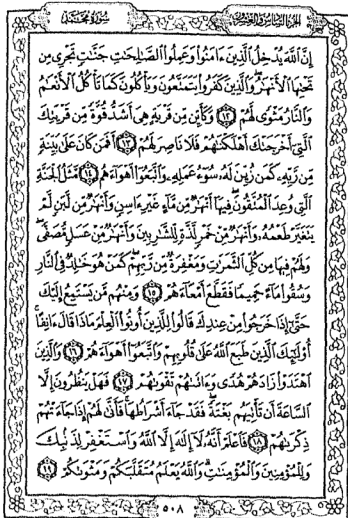 الجزء السادس والعشرون
سورة محمد
إِنَّ ٱللَّهَ يُدۡخِلُ ٱلَّذِينَ ءَامَنُواْ وَعَمِلُواْ ٱلصَّٰلِحَٰتِ جَنَّٰتٖ تَجۡرِي مِن
تَحۡتِهَا ٱلۡأَنۡهَٰرُۖ وَٱلَّذِينَ كَفَرُواْ يَتَمَتَّعُونَ وَيَأۡكُلُونَ كَمَا تَأۡكُلُ ٱلۡأَنۡعَٰمُ
وَٱلنَّارُ مَثۡوٗى لَّهُمۡ ١٢ وَكَأَيِّن مِّن قَرۡيَةٍ هِيَ أَشَدُّ قُوَّةٗ مِّن قَرۡيَتِكَ
ٱلَّتِيٓ أَخۡرَجَتۡكَ أَهۡلَكۡنَٰهُمۡ فَلَا نَاصِرَ لَهُمۡ ١٣ أَفَمَن كَانَ عَلَىٰ بَيِّنَةٖ
مِّن رَّبِّهِۦ كَمَن زُيِّنَ لَهُۥ سُوٓءُ عَمَلِهِۦ وَٱتَّبَعُوٓاْ أَهۡوَآءَهُم ١٤ مَّثَلُ ٱلۡجَنَّةِ
ٱلَّتِي وُعِدَ ٱلۡمُتَّقُونَۖ فِيهَآ أَنۡهَٰرٞ مِّن مَّآءٍ غَيۡرِ ءَاسِنٖ وَأَنۡهَٰرٞ مِّن لَّبَنٖ لَّمۡ
يَتَغَيَّرۡ طَعۡمُهُۥ وَأَنۡهَٰرٞ مِّنۡ خَمۡرٖ لَّذَّةٖ لِّلشَّٰرِبِينَ وَأَنۡهَٰرٞ مِّنۡ عَسَلٖ مُّصَفّٗىۖ
وَلَهُمۡ فِيهَا مِن كُلِّ ٱلثَّمَرَٰتِ وَمَغۡفِرَةٞ مِّن رَّبِّهِمۡۖ كَمَنۡ هُوَ خَٰلِدٞ فِي ٱلنَّارِ
وَسُقُواْ مَآءً حَمِيمٗا فَقَطَّعَ أَمۡعَآءَهُمۡ ١٥ وَمِنۡهُم مَّن يَسۡتَمِعُ إِلَيۡكَ
حَتَّىٰٓ إِذَا خَرَجُواْ مِنۡ عِندِكَ قَالُواْ لِلَّذِينَ أُوتُواْ ٱلۡعِلۡمَ مَاذَا قَالَ ءَانِفًاۚ
أُوْلَٰٓئِكَ ٱلَّذِينَ طَبَعَ ٱللَّهُ عَلَىٰ قُلُوبِهِمۡ وَٱتَّبَعُوٓاْ أَهۡوَآءَهُمۡ ١٦ وَٱلَّذِينَ
ٱهۡتَدَوۡاْ زَادَهُمۡ هُدٗى وَءَاتَىٰهُمۡ تَقۡوَىٰهُمۡ ١٧ فَهَلۡ يَنظُرُونَ إِلَّا
ٱلسَّاعَةَ أَن تَأۡتِيَهُم بَغۡتَةٗۖ فَقَدۡ جَآءَ أَشۡرَاطُهَاۚ فَأَنَّىٰ لَهُمۡ إِذَا جَآءَتۡهُمۡ
ذِكۡرَىٰهُمۡ ١٨ فَٱعۡلَمۡ أَنَّهُۥ لَآ إِلَٰهَ إِلَّا ٱللَّهُ وَٱسۡتَغۡفِرۡ لِذَنۢبِكَ
وَلِلۡمُؤۡمِنِينَ وَٱلۡمُؤۡمِنَٰتِۗ وَٱللَّهُ يَعۡلَمُ مُتَقَلَّبَكُمۡ وَمَثۡوَىٰكُمۡ ١٩
٥٠٨